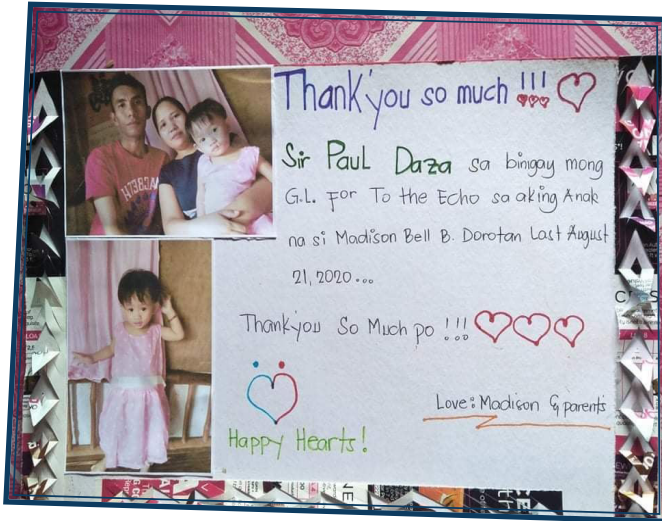 Thank'you so much !!!
Sir Paul Daza sa binigay mong
G.L. For To the Echo sa aking Anak
na si Madison Bell B. Dorotan Last August
21, 2020...
Thank'you So Much po !!!
Love: Madison & parents
Happy Hearts!